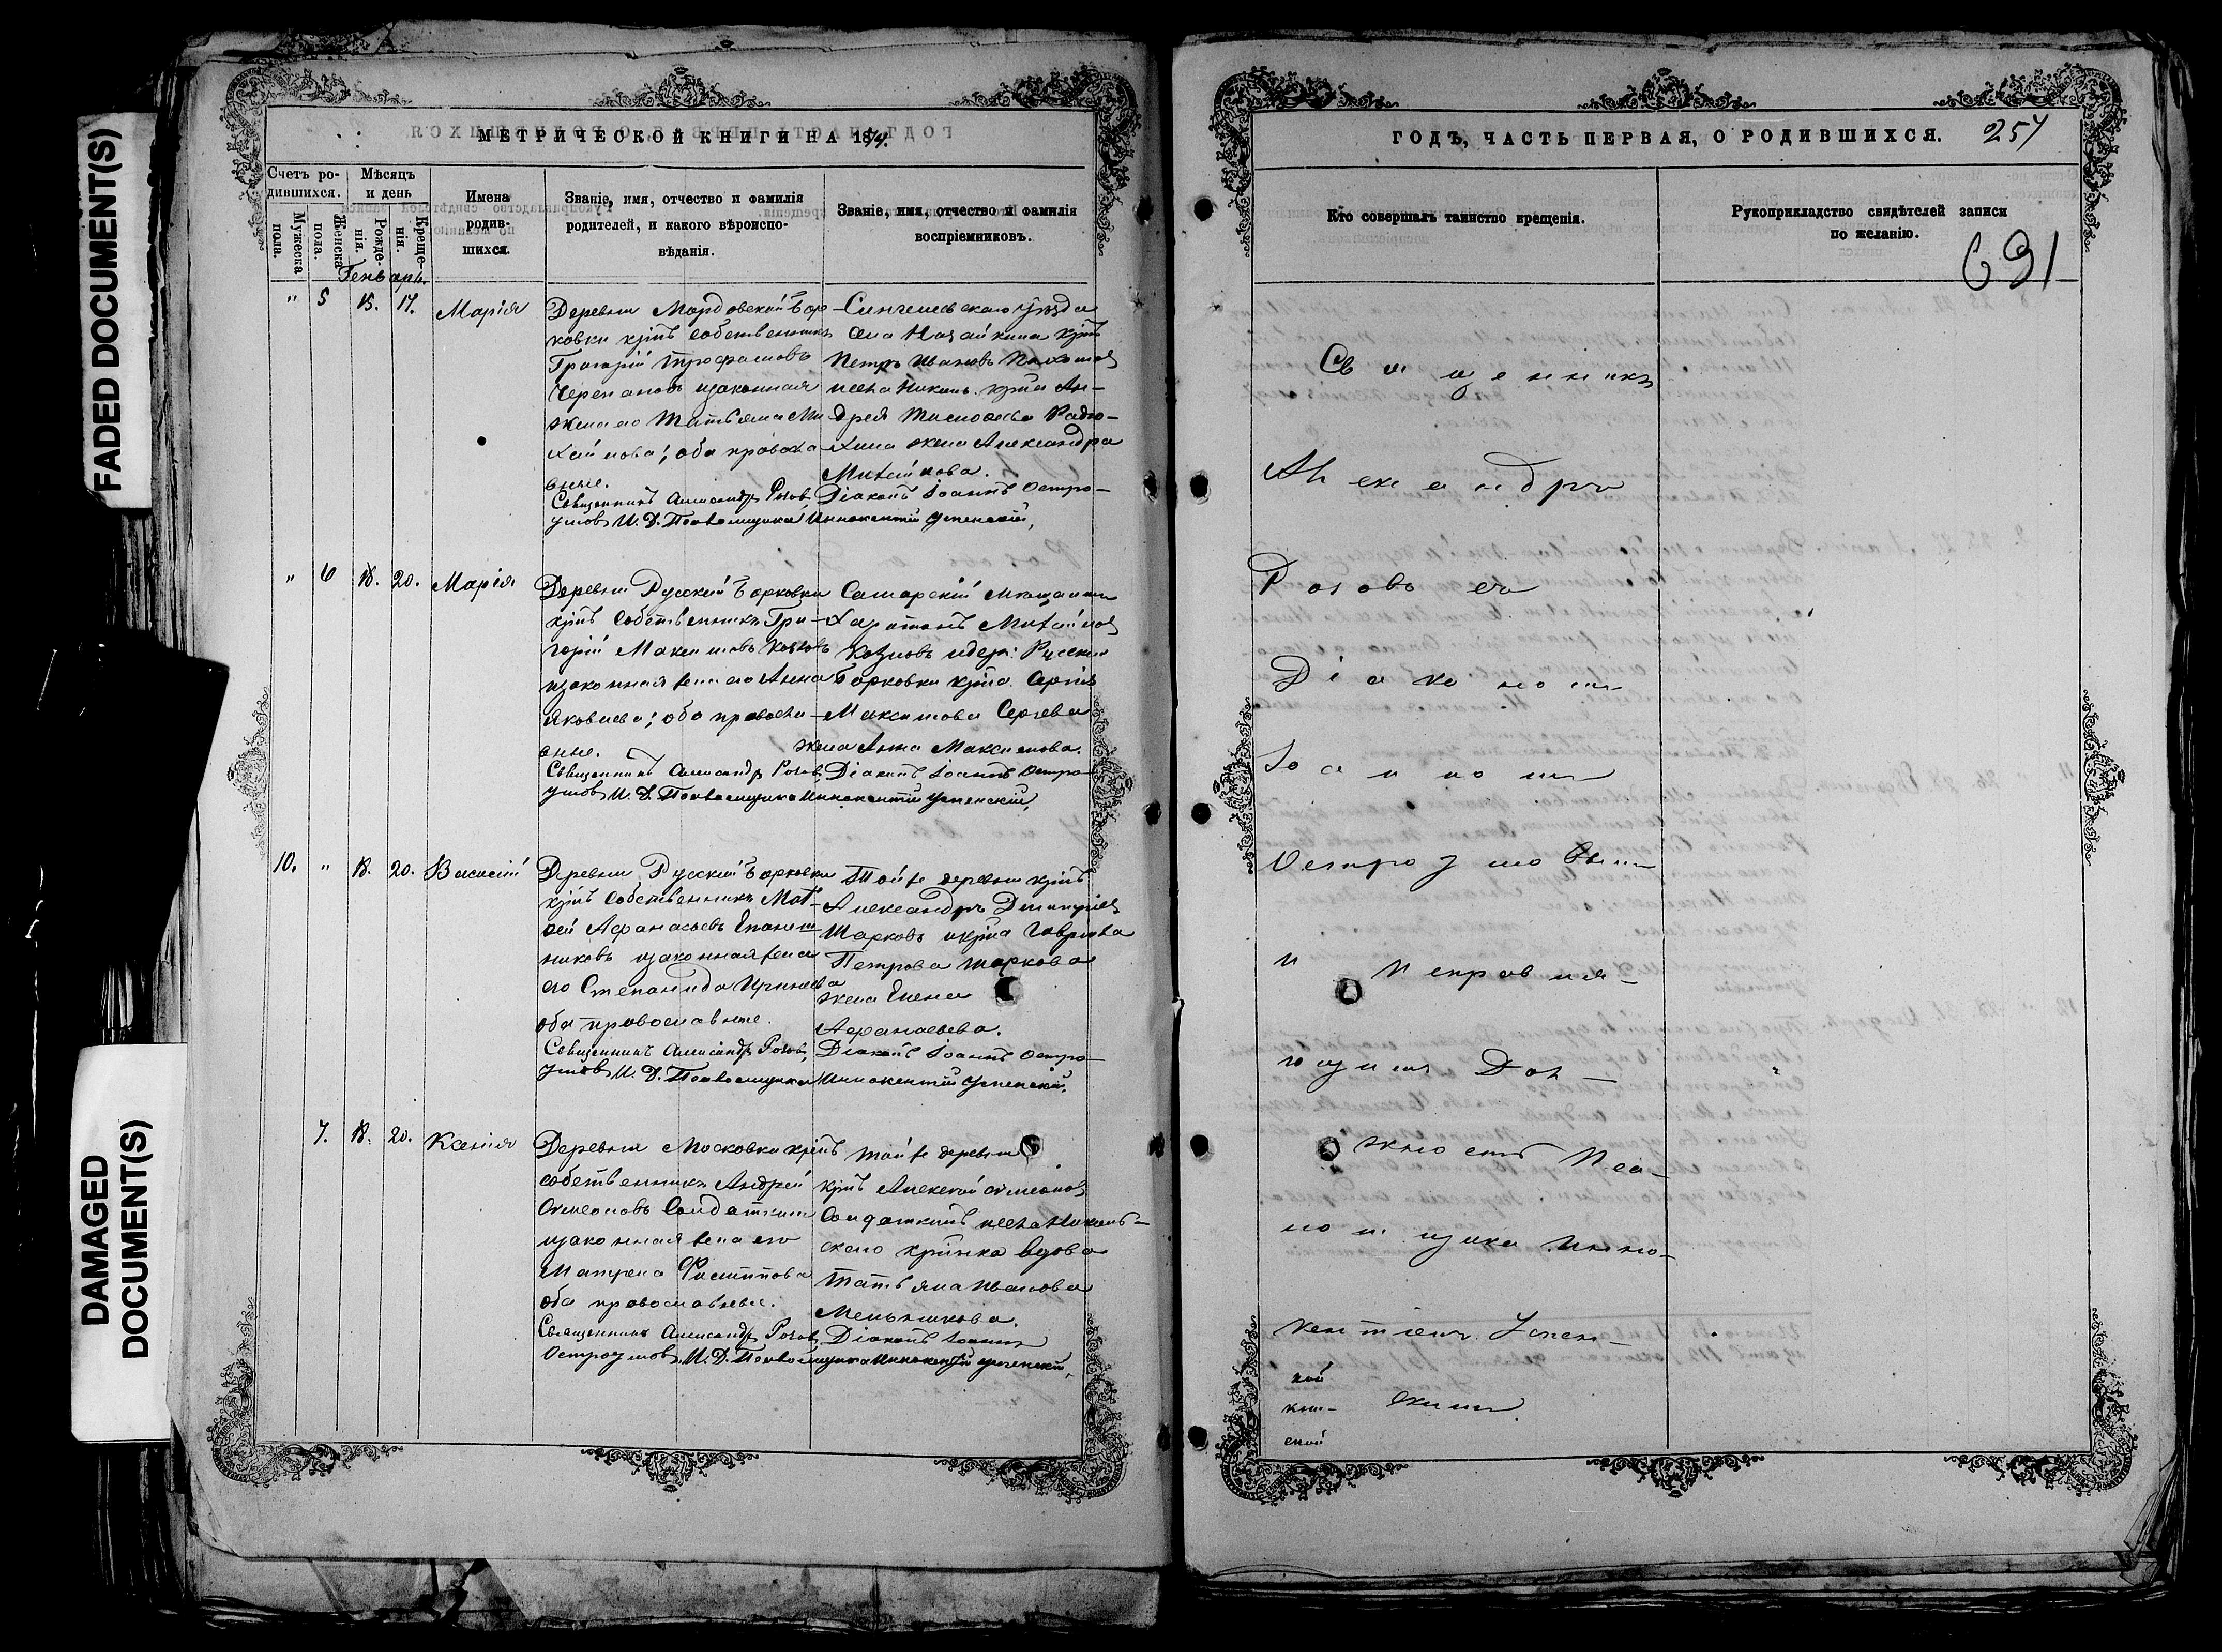 FADED DOCUMENT(S)
DAMAGED
DOCUMENT(S)
МЕТРИЧЕСКОЙ КНИГИ НА 1874.
Счетъ ро-
дившихся.
Мужеска
пола.
Женска
пола.
Мѣсяцъ
и день
Рожде-
нія.
Креще-
нія.
Имена
родив-
шихся.
Званіе, имя, отчество и фамилія
родителей, и какого вѣроиспо-
вѣданія.
Званіе, имя, отчество и фамилія
воспріемниковъ.
Генварь.
" 5 15. 17. Марія
Деревни Мордовской Бор
ковки крнъ собственникъ
Григорій Трофимовъ
Черепановъ изаконная
жена его Татьяна Ми
хайлова; оба правосла
вные.
Священникъ Александръ Розовъ,
Сингилеевскаго уѣзда
села крнъ
Петръ Ивановъ
села Никол. крна Ан-
дрея Радю-
хина жена Александра
Михайлова.
Діаконъ Іоаннъ Остро-
умовъ И. Д. Псаломщика Иннокентій Успенскій,
" 6 18. 20. Марія
Деревни Русской Борковки
крнъ собственникъ Гри-
горій Максимовъ Козловъ
изаконная жена его Анна
Яковлева; оба правосла-
вные.
Священникъ Александръ Розовъ,
Самарскій мѣщанинъ
Харитонъ Михайловъ
Козловъ идер: Русской
Борковки крна Сергія
Максимова Сергѣева
жена Анна Максимова.
Діаконъ Іоаннъ Остро-
умовъ И. Д. Псаломщика Иннокентій Успенскій,
10. " 18. 20. Василій
Деревни Русской Борковки
крнъ собственникъ Мат-
вей Афанасьевъ
изаконная жена
его Степанида Игнатьева
оба православные.
Священникъ Александръ Розовъ,
Той же деревни крнъ
Александръ Димитріевъ
Шарковъ икрна Гаврила
Петрова Шаркова
жена Елена
Афанасьева.
Діаконъ Іоаннъ Остро-
умовъ И. Д. Псаломщика Иннокентій Успенскій.
7. 18. 20. Ксенія
Деревни Московки крнъ
собственникъ Андрей
Симеоновъ Солдаткинъ
изаконная жена его
Матрена Филиппова
оба православные.
Священникъ Александръ Розовъ,
той же деревни
крнъ Алексѣй Симеоновъ
Солдаткинъ исела Николь-
скаго крнка вдова
Татьяна Иванова
Меньшикова.
Діаконъ Іоаннъ
Остроумовъ, И. Д. Псаломщика Иннокентій Успенскій,
ГОДЪ, ЧАСТЬ ПЕРВАЯ, О РОДИВШИХСЯ. 257
Кто совершалъ таинство крещенія.
Рукоприкладство свидѣтелей записи
по желанію.
691
Священникъ
Александръ
Розовъ съ
Діакономъ
Іоанномъ
Остроумовымъ
и Исправля-
ющимъ Дол-
жность Пса-
ломщика Инно-
кентіемъ Успен-
скимъ.